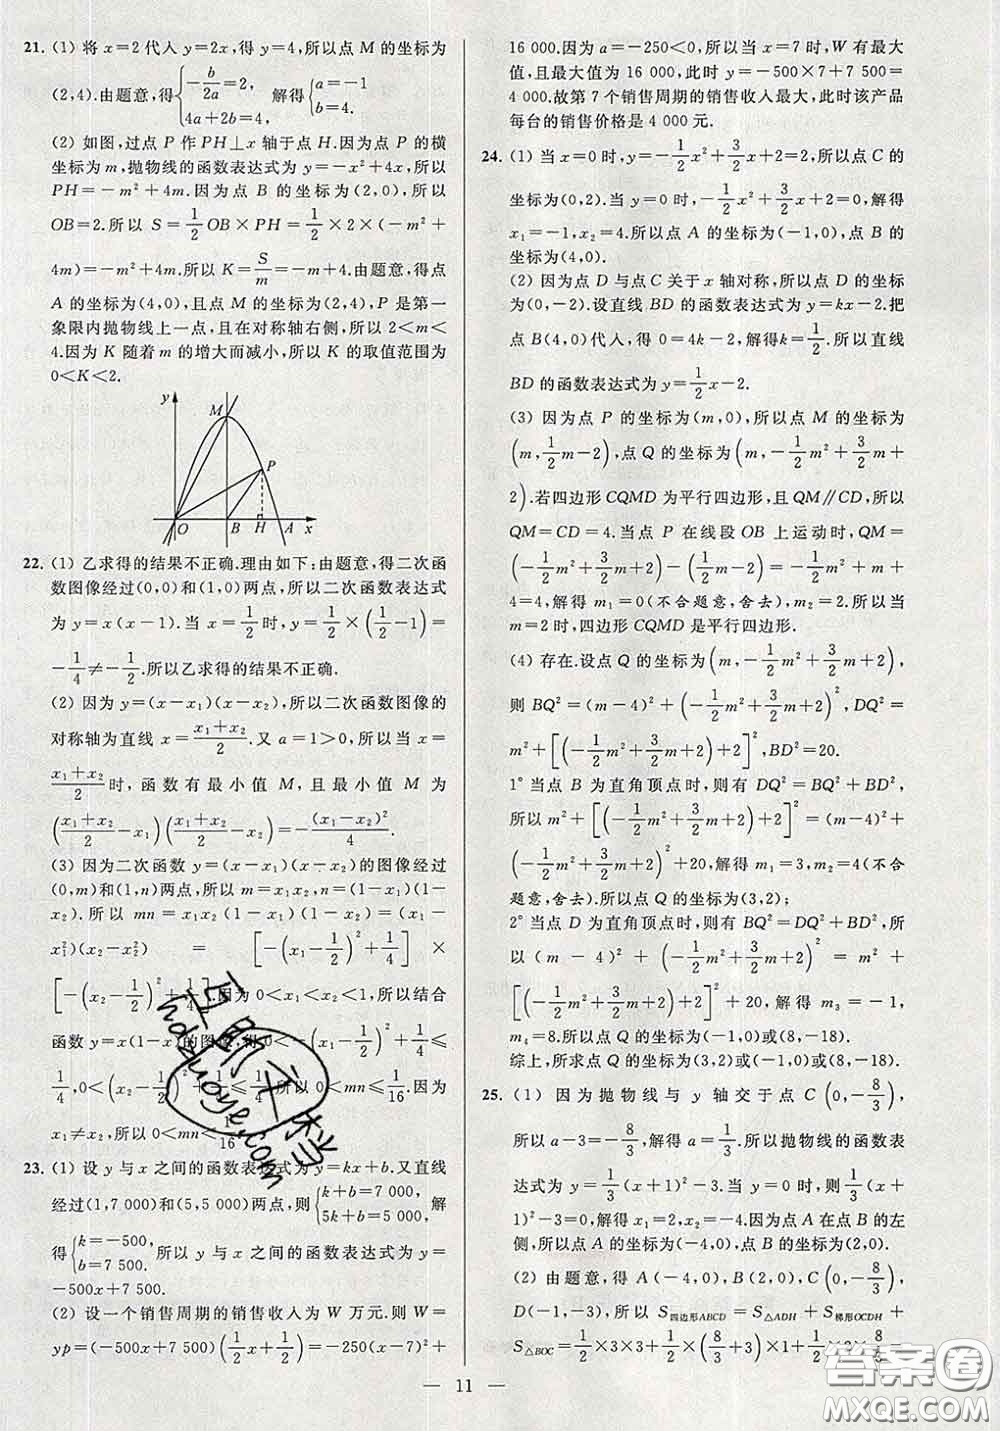 21. (1) 将 x=2 代入 y=2x,得 y=4,所以点 M 的坐标为
(2,4).由题意,得{-b/2a=2, 4a+2b=4, 解得{a=-1 b=4.
(2) 如图,过点 P 作 PH⊥x 轴于点 H.因为点 P 的横
坐标为 m,抛物线的函数表达式为 y=-x²+4x,所以
PH=-m²+4m.因为点 B 的坐标为(2,0),所以
OB=2.所以 S=1/2 OB×PH=1/2×2×(-m²+
4m)=-m²+4m.所以 K=S/m=-m+4.由题意,得点
A 的坐标为(4,0),且点 M 的坐标为(2,4),P 是第一
象限内抛物线上一点,且在对称轴右侧,所以 2<m<
4.因为 K 随着 m 的增大而减小,所以 K 的取值范围为
0<K<2.
y
M
P
O B H A x
22. (1) 乙求得的结果不正确.理由如下:由题意,得二次函
数图像经过(0,0)和(1,0)两点,所以二次函数表达式
为 y=x(x-1).当 x=1/2时,y=1/2×(1/2-1)=
-1/4≠-1/2.所以乙求得的结果不正确.
(2) 因为 y=(x-x₁)(x-x₂),所以二次函数图像的
对称轴为直线 x=(x₁+x₂)/2.又 a=1>0,所以当 x=
(x₁+x₂)/2时,函数有最小值 M,且最小值 M 为
((x₁+x₂)/2-x₁)((x₁+x₂)/2-x₂)=-(x₁-x₂)²/4.
(3) 因为二次函数 y=(x-x₁)(x-x₂)的图像经过
(0,m)和(1,n)两点,所以 m=x₁x₂,n=(1-x₁)(1-
x₂).所以 mn=x₁x₂(1-x₁)(1-x₂)=(x₁-
x₁²)(x₂-x₂²) = [-(x₁-1/2)²+1/4] ×
[-(x₂-1/2)²+1/4].因为 0<x₁<x₂<1,所以结合
函数 y=x(1-x)的图像,得 0<-(x₁-1/2)²+1/4≤
1/4,0<-(x₂-1/2)²+1/4≤1/4.所以 0<mn≤1/16.因为
x₁≠x₂,所以 0<mn<1/16.
23. (1) 设 y 与 x 之间的函数表达式为 y=kx+b.又直线
经过(1,7 000)和(5,5 000)两点,则{k+b=7 000, 5k+b=5 000, 解
得{k=-500, b=7 500. 所以 y 与 x 之间的函数表达式为 y=
-500x+7 500.
(2) 设一个销售周期的销售收入为 W 万元.则 W=
yp=(-500x+7 500)(1/2x+1/2)=-250(x-7)²+
16 000.因为 a=-250<0,所以当 x=7 时,W 有最大
值,且最大值为 16 000,此时 y=-500×7+7 500=
4 000.故第 7 个销售周期的销售收入最大,此时该产品
每台的销售价格是 4 000 元.
24. (1) 当 x=0 时,y=-1/2x²+3/2x+2=2,所以点 C 的
坐标为(0,2).当 y=0 时,-1/2x²+3/2x+2=0,解得
x₁=-1,x₂=4.所以点 A 的坐标为(-1,0),点 B 的
坐标为(4,0).
(2) 因为点 D 与点 C 关于 x 轴对称,所以点 D 的坐标
为(0,-2).设直线 BD 的函数表达式为 y=kx-2.把
点 B(4,0)代入,得 0=4k-2,解得k=1/2.所以直线
BD 的函数表达式为 y=1/2x-2.
(3) 因为点 P 的坐标为(m,0),所以点 M 的坐标为
(m,1/2m-2),点 Q 的坐标为(m,-1/2m²+3/2m+
2).若四边形 CQMD 为平行四边形,且 QM∥CD,所以
QM=CD=4.当点 P 在线段 OB 上运动时,QM=
(-1/2m²+3/2m+2)-(1/2m-2)=-1/2m²+m+
4=4,解得 m₁=0(不合题意,舍去),m₂=2.所以当
m=2 时,四边形 CQMD 是平行四边形.
(4) 存在.设点 Q 的坐标为(m,-1/2m²+3/2m+2),
则 BQ²=(m-4)²+(-1/2m²+3/2m+2)²,DQ²=
m²+[(-1/2m²+3/2m+2)+2]²,BD²=20.
1°当点 B 为直角顶点时,则有 DQ²=BQ²+BD²,
所以 m²+[(-1/2m²+3/2m+2)+2]²=(m-4)²+
(-1/2m²+3/2m+2)²+20,解得 m₁=3,m₂=4(不合
题意,舍去).所以点 Q 的坐标为(3,2);
2°当点 D 为直角顶点时,则有 BQ²=DQ²+BD²,所
以 (m-4)² + (-1/2m²+3/2m+2)² = m² +
[(-1/2m²+3/2m+2)+2]²+20,解得 m₃=-1,
m₄=8.所以点 Q 的坐标为(-1,0)或(8,-18).
综上,所求点 Q 的坐标为(3,2)或(-1,0)或(8,-18).
25. (1) 因为抛物线与 y 轴交于点 C(0,-8/3),
所以 a-3=-8/3,解得 a=1/3.所以抛物线的函数表
达式为 y=1/3(x+1)²-3.当 y=0 时,则 1/3(x+
1)²-3=0,解得 x₁=2,x₂=-4.因为点 A 在点 B 的左
侧,所以点 A 的坐标为(-4,0),点 B 的坐标为(2,0).
(2) 由题意,得 A(-4,0),B(2,0),C(0,-8/3),
D(-1,-3),所以 S四边形ABCD=S△ADH+S梯形OCDH+
S△BOC=1/2×3×3+1/2×(8/3+3)×1+1/2×2×8/3
— 11 —
互助文档
hdzuoye.com
答案圈
MXQE.COM